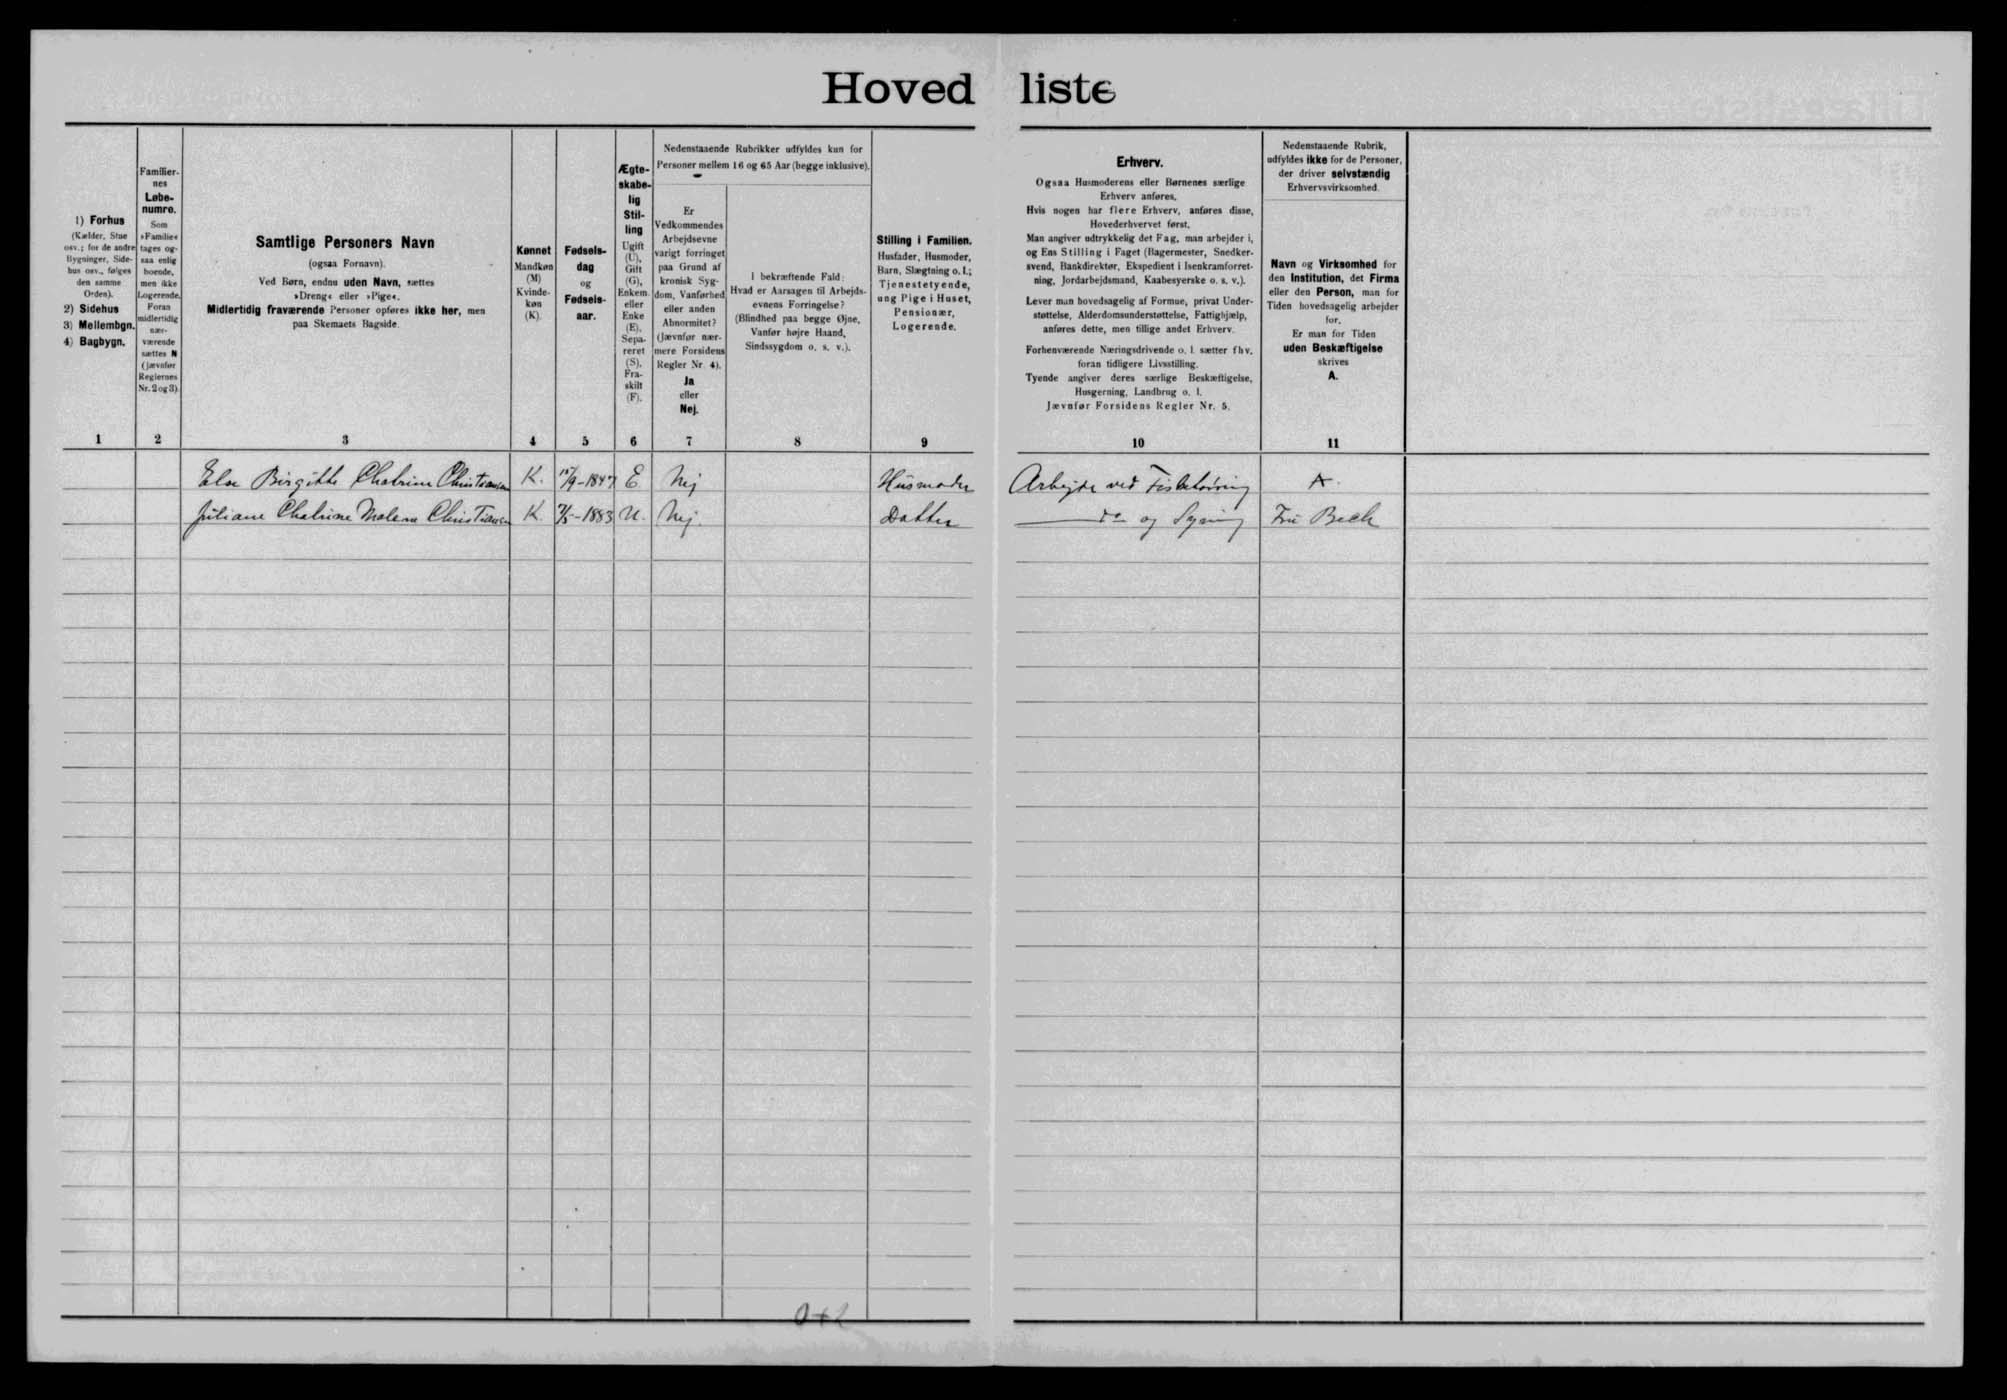 Hovedliste
1) Forhus
(Kælder, Stue
osv.; for de andre
Bygninger, Side-
hus osv., følges
den samme
Orden).
2) Sidehus
3) Mellembgn.
4) Bagbygn.
Familier-
nes
Løbe-
numre.
Som
»Familie«
tages og-
saa enlig
boende,
men ikke
Logerende.
Foran
midlertidig
nær-
værende
sættes N
(jævnfør
Reglernes
Nr. 2 og 3).
Samtlige Personers Navn
(ogsaa Fornavn).
Ved Børn, endnu uden Navn, sættes
»Dreng« eller »Pige«.
Midlertidig fraværende Personer opføres ikke her, men
paa Skemaets Bagside.
Kønnet
Mandkøn
(M)
Kvinde-
køn
(K).
Fødsels-
dag
og
Fødsels-
aar.
Ægte-
skabe-
lig
Stil-
ling
Ugift
(U),
Gift
(G),
Enkem.
eller
Enke
(E),
Sepa-
reret
(S),
Fra-
skilt
(F).
Nedenstaaende Rubrikker udfyldes kun for
Personer mellem 16 og 65 Aar (begge inklusive).
Er
Vedkommendes
Arbejdsevne
varigt forringet
paa Grund af
kronisk Syg-
dom, Vanførhed
eller anden
Abnormitet?
(Jævnfør nær-
mere Forsidens
Regler Nr. 4).
Ja
eller
Nej.
I bekræftende Fald:
Hvad er Aarsagen til Arbejds-
evnens Forringelse?
(Blindhed paa begge Øjne,
Vanfør højre Haand,
Sindssygdom o. s. v.).
Stilling i Familien.
Husfader, Husmoder,
Barn, Slægtning o. l.;
Tjenestetyende,
ung Pige i Huset,
Pensionær,
Logerende.
Erhverv.
Ogsaa Husmoderens eller Børnenes særlige
Erhverv anføres.
Hvis nogen har flere Erhverv, anføres disse,
Hovederhvervet først.
Man angiver udtrykkelig det Fag, man arbejder i,
og Ens Stilling i Faget (Bagermester, Snedker-
svend, Bankdirektør, Ekspedient i Isenkramforret-
ning, Jordarbejdsmand, Kaabesyerske o. s. v.).
Lever man hovedsagelig af Formue, privat Under-
støttelse, Alderdomsunderstøttelse, Fattighjælp,
anføres dette, men tillige andet Erhverv.
Forhenværende Næringsdrivende o. l. sætter fhv.
foran tidligere Livsstilling.
Tyende angiver deres særlige Beskæftigelse,
Husgerning, Landbrug o. l.
Jævnfør Forsidens Regler Nr. 5.
Nedenstaaende Rubrik,
udfyldes ikke for de Personer,
der driver selvstændig
Erhvervsvirksomhed.
Navn og Virksomhed for
den Institution, det Firma
eller den Person, man for
Tiden hovedsagelig arbejder
for.
Er man for Tiden
uden Beskæftigelse
skrives
A.
1 2 3 4 5 6 7 8 9 10 11
Else Birgitte Chatrine Christiansen K. /9-1847 E. Nej Husmoder Arbejde ved Fisketørring A.
Juliane Chatrine Malene Christiansen K. 7/5-1883 U. Nej. Datter do og Syning Fru Beck
0+2